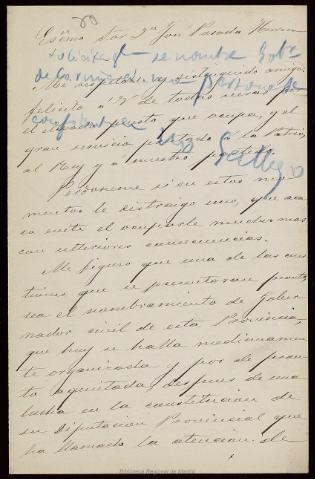 30
Exčmo Sor Dn José Posada Herrera
solicita q. se nombre Gobr.
Mi respetable y distinguido amigo:
felicito á V. de todas veras por
el elevado puesto que ocupa, y el
gran servicio prestado á la Patria,
al Rey y á nuestro partido.
Perdoneme si en estos mo-
mentos le distraigo uno, que aca-
so evite el ocuparle muchos mas
con ulteriores consecuencias.
Me figuro que una de las cues-
tiones que se presentaran pronto
sea el nombramiento de Gober-
nador civil de esta Provincia,
que hoy se halla medianamen-
te organizada y por de pron-
to aquietada despues de una
lucha en la constitucion de
su Diputacion Provincial que
ha llamado la atencion de
Biblioteca Regional de Madrid